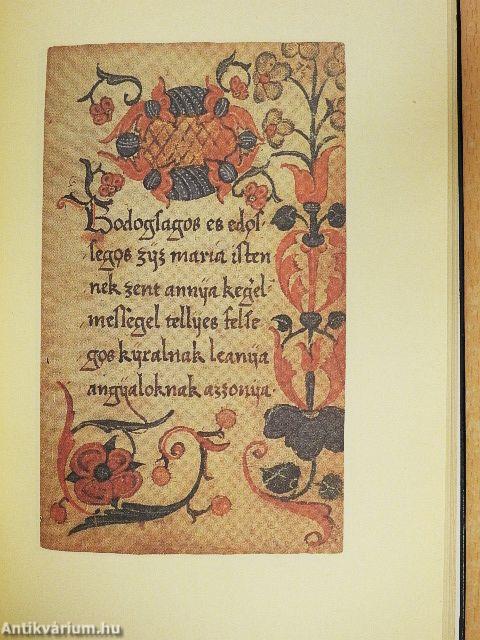 Bodogsagos es edos
segos zyz maria isten
nek zent annya keģel
messegel tellyes felse
gos kyralnak leanya
angyaloknak azzonya
Antikvárium.hu